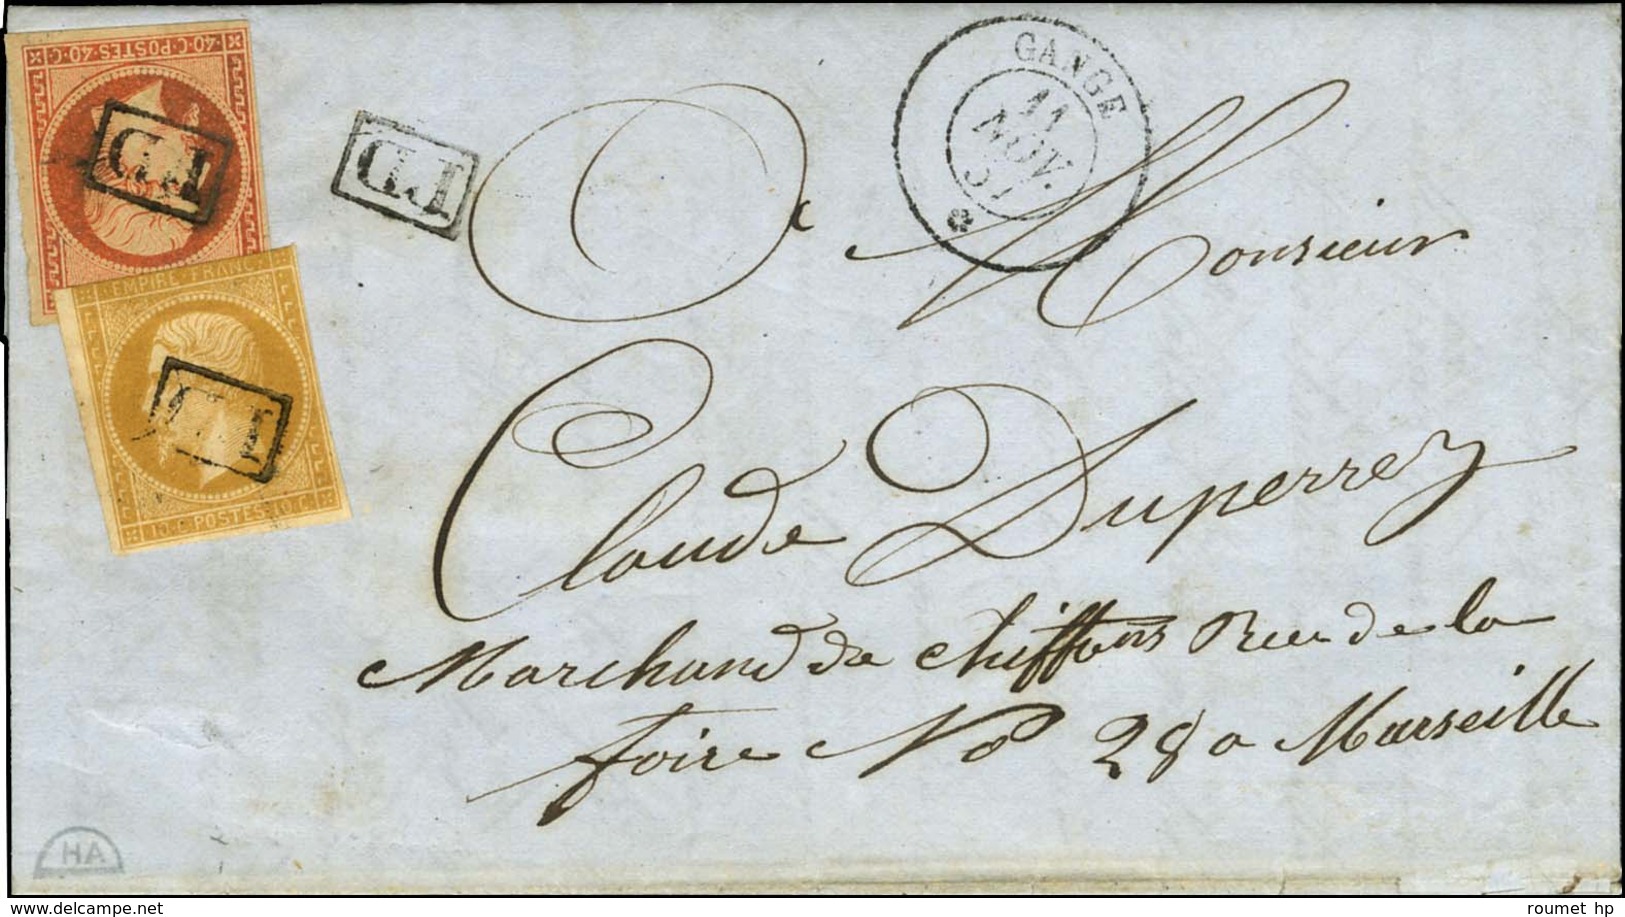 40·C·POSTES·40·C·
P.D
P.D
GANGE
11
NOV.
57
EMPIRE FRANC
P.D
10·C·POSTES·10·C·
A Monsieur
Claude Duperrey
Marchand de chiffons Rue de la
foire No 28 a Marseille
HA
www.delcampe.net
roumet hp